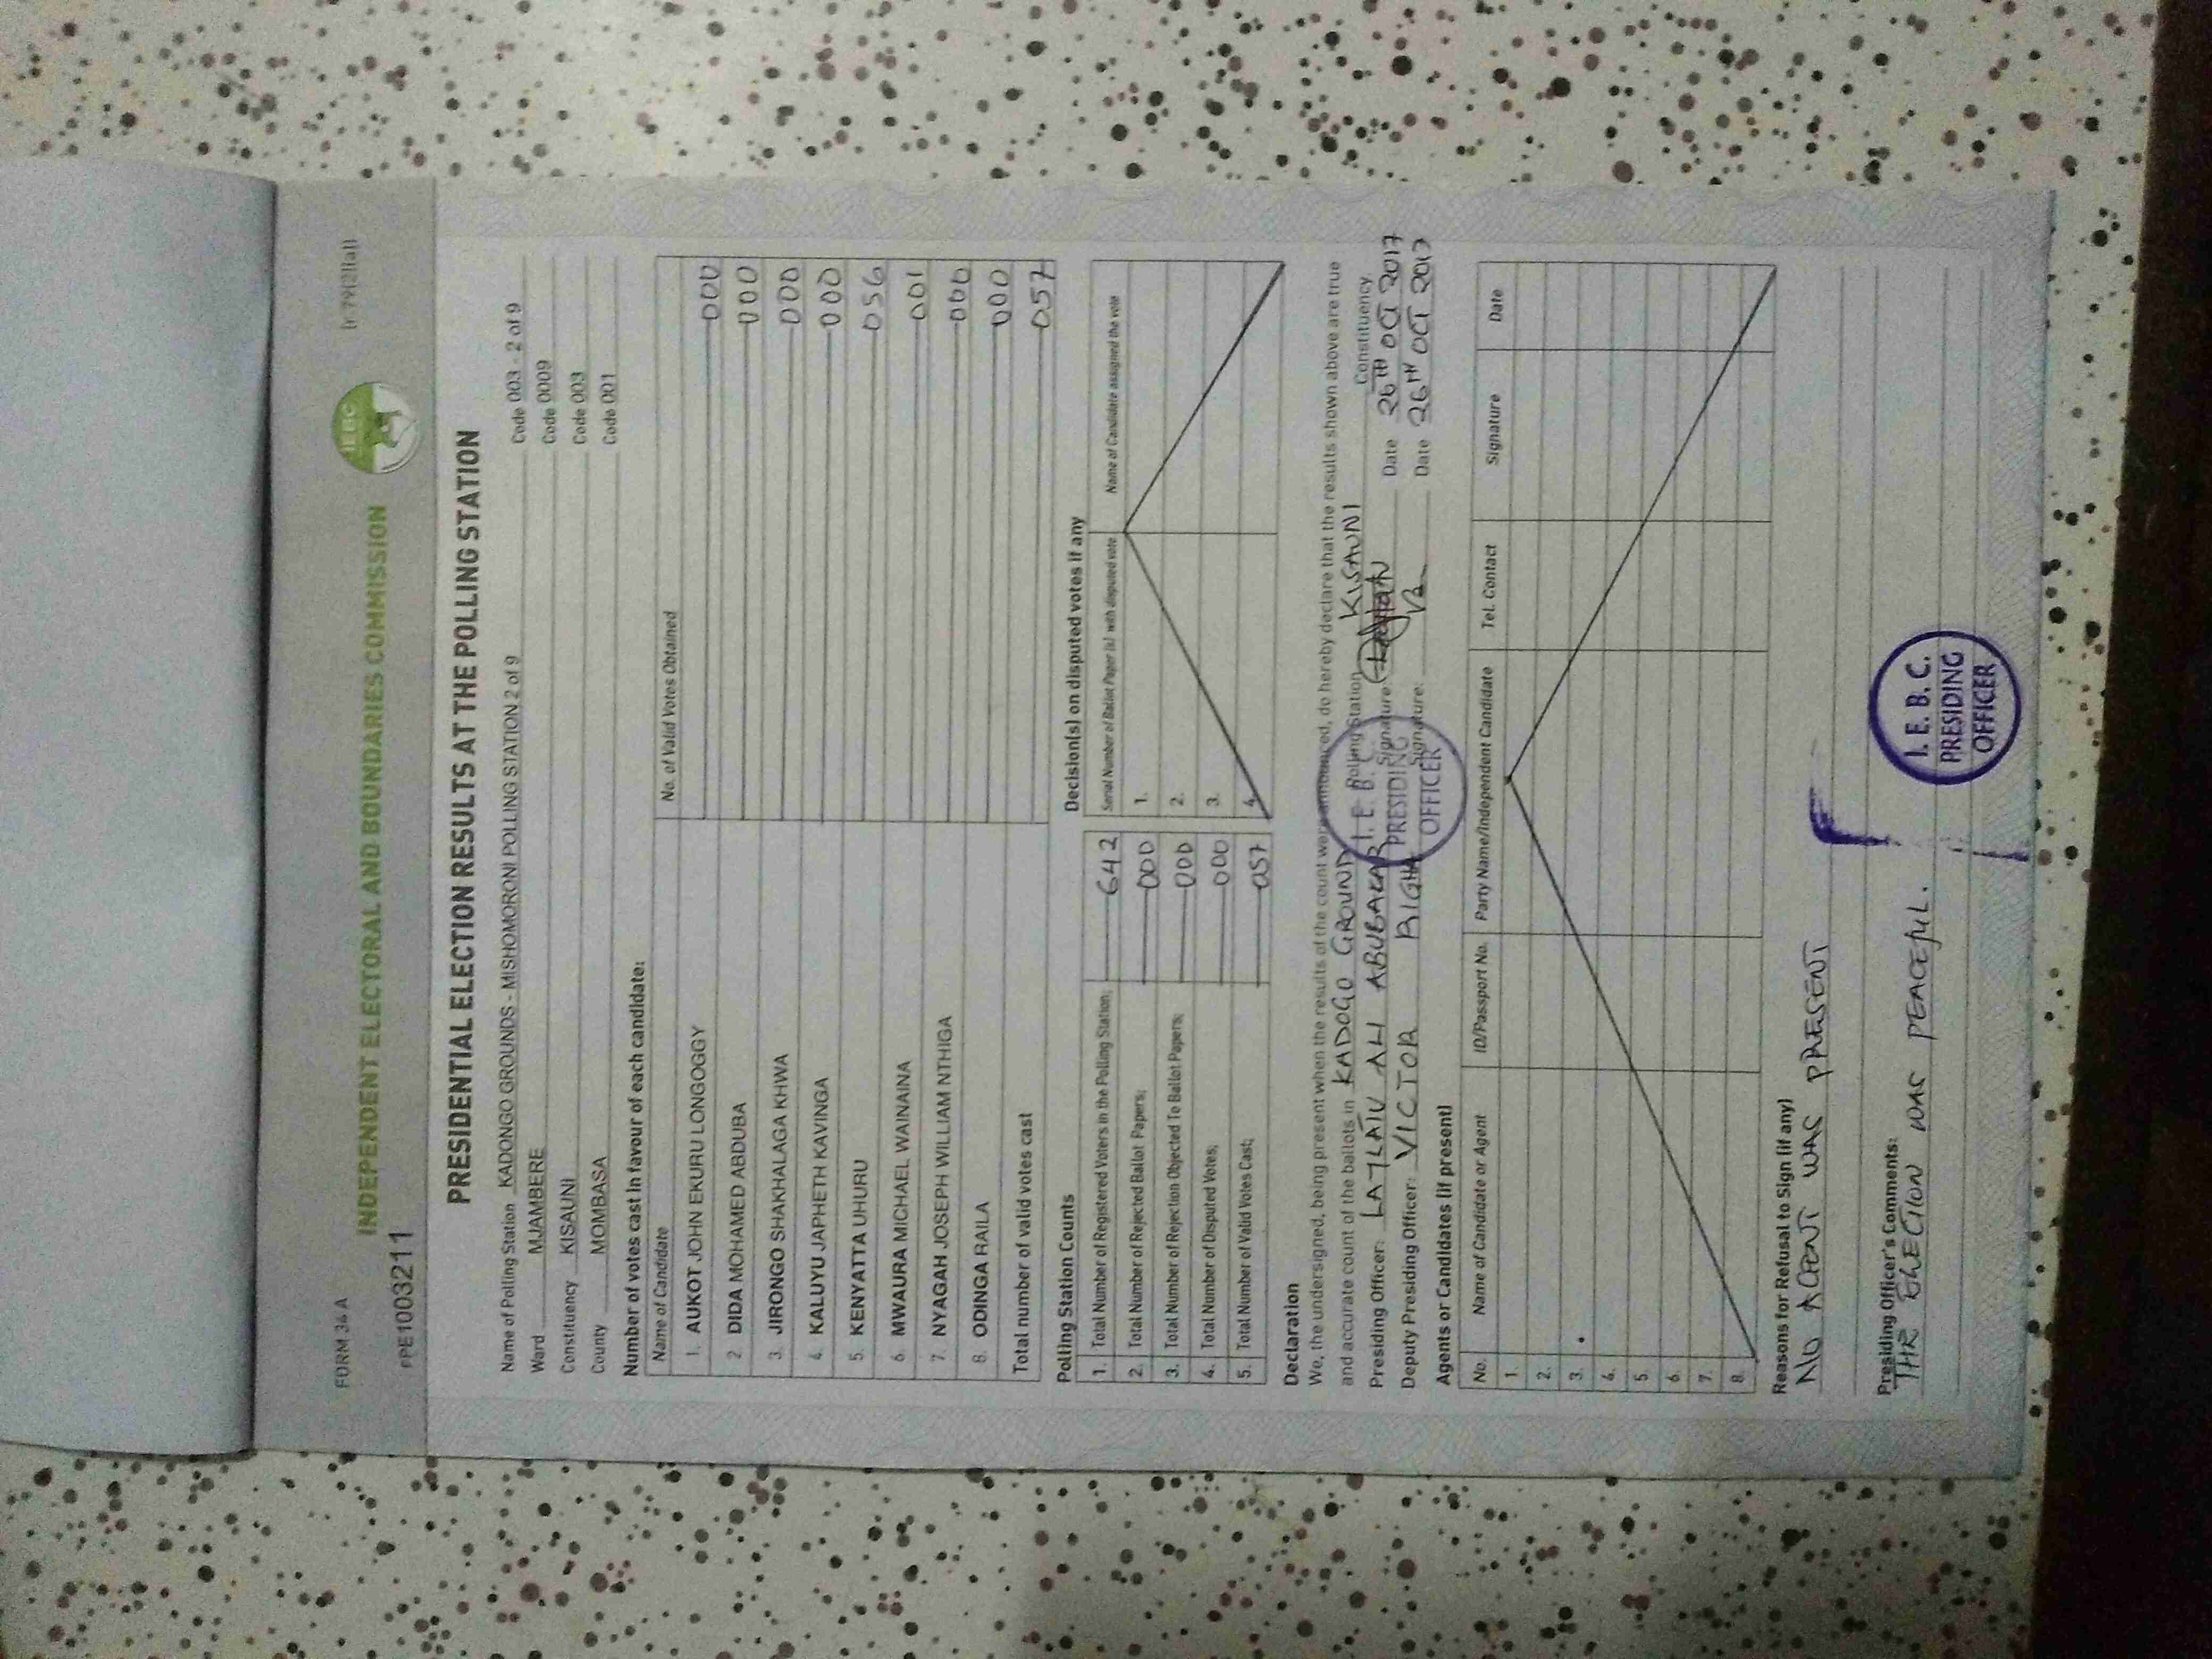 FORM 34 A
(r 79(2)(a))
INDEPENDENT ELECTORAL AND BOUNDARIES COMMISSION
IEBC
PPE1003211
PRESIDENTIAL ELECTION RESULTS AT THE POLLING STATION
Name of Polling Station KADONGO GROUNDS - MISHOMORONI POLLING STATION 2 of 9 Code 003 - 2 of 9
Ward MJAMBERE Code 0009
Constituency KISAUNI Code 003
County MOMBASA Code 001
Number of votes cast in favour of each candidate:
Name of Candidate No. of Valid Votes Obtained
1. AUKOT JOHN EKURU LONGOGGY 000
2 DIDA MOHAMED ABDUBA 000
3. JIRONGO SHAKHALAGA KHWA 000
4. KALUYU JAPHETH KAVINGA 000
5. KENYATTA UHURU 056
6 MWAURA MICHAEL WAINAINA 001
7. NYAGAH JOSEPH WILLIAM NTHIGA 000
8. ODINGA RAILA 000
Total number of valid votes cast 057
Polling Station Counts
1. Total Number of Registered Voters in the Polling Station; 642
2. Total Number of Rejected Ballot Papers; 000
3. Total Number of Rejection Objected To Ballot Papers; 000
4. Total Number of Disputed Votes; 000
5. Total Number of Valid Votes Cast; 057
Decision(s) on disputed votes if any
Serial Number of Ballot Paper (s) with disputed vote Name of Candidate assigned the vote
1.
2.
3.
4.
Declaration
We, the undersigned, being present when the results of the count were announced, do hereby declare that the results shown above are true
and accurate count of the ballots in KADOGO GROUND Polling Station KISAUNI Constituency
Presiding Officer: LATLAIU ALI ABUBAKAR Signature: Date 26TH OCT 2017
Deputy Presiding Officer: VICTOR RIGHA Signature: Date 26TH OCT 2017
I. E. B. C.
PRESIDING
OFFICER
Agents or Candidates (if present)
No. Name of Candidate or Agent ID/Passport No. Party Name/Independent Candidate Tel. Contact Signature Date
1.
2.
3.
4.
5.
6.
7.
8.
Reasons for Refusal to Sign (if any)
NO AGENT WAS PRESENT
Presiding Officer's Comments:
THE ELECTION WAS PEACEFUL.
I. E. B. C.
PRESIDING
OFFICER